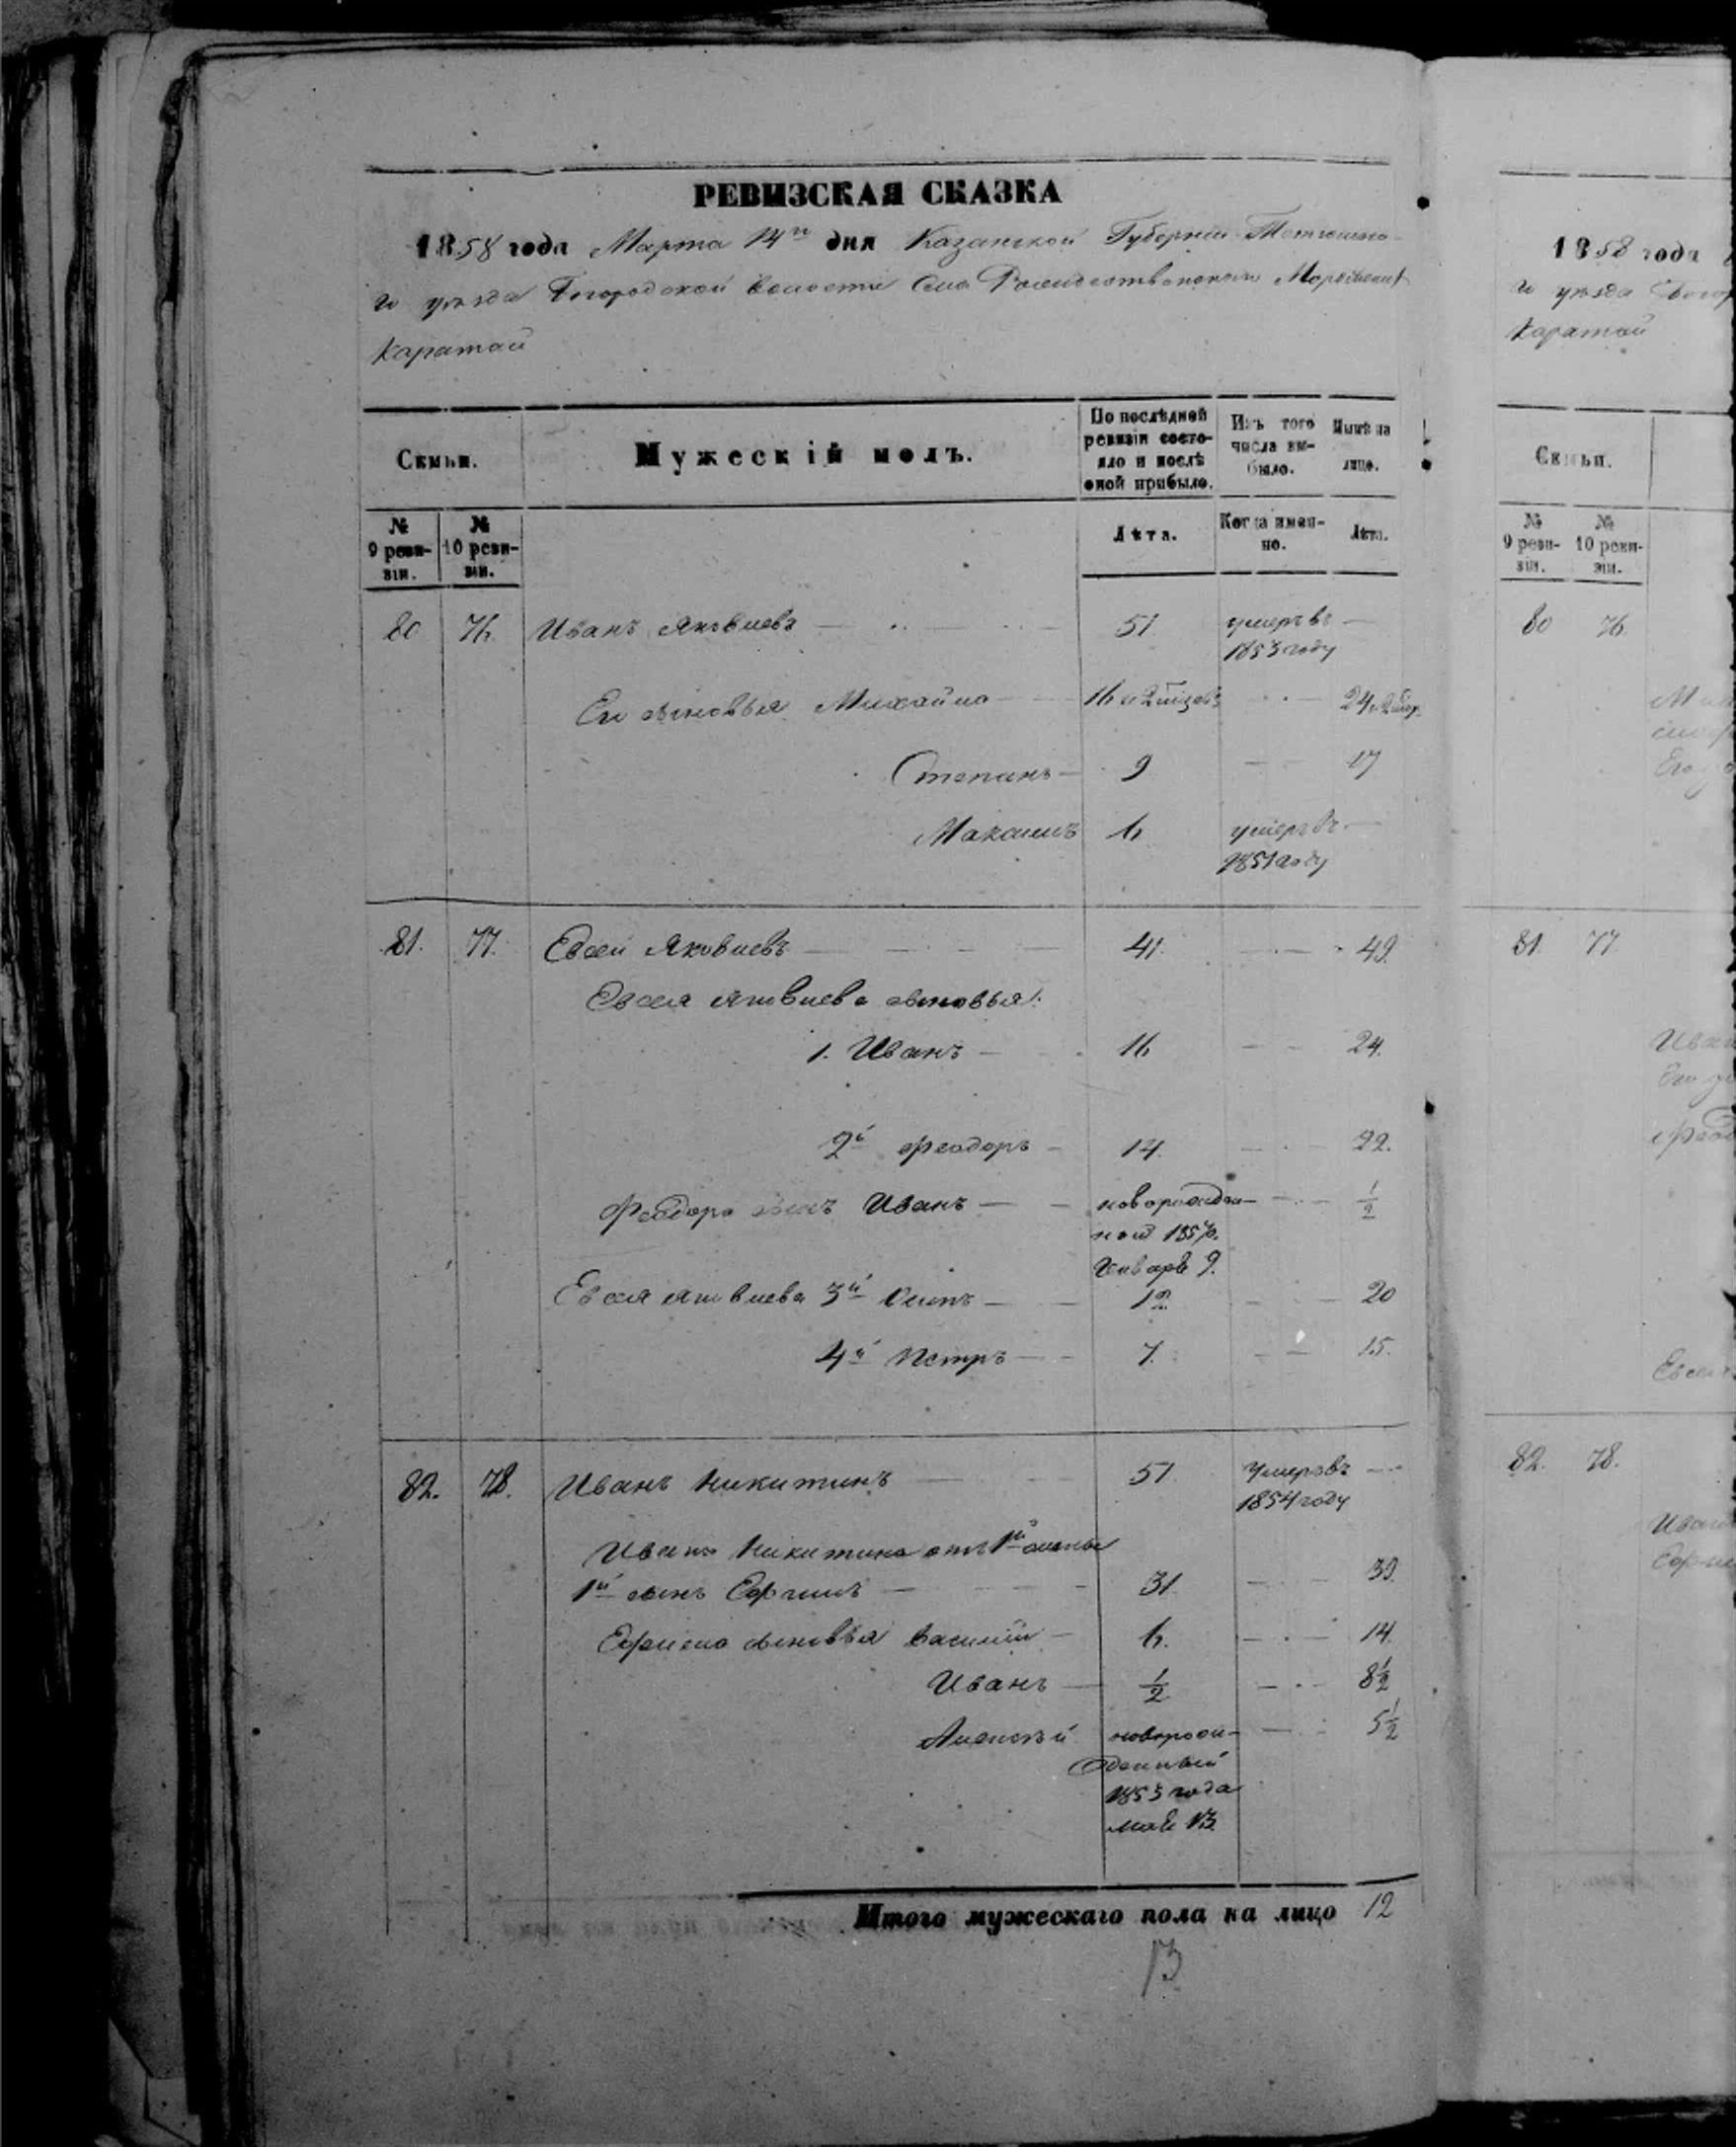 РЕВИЗСКАЯ СКАЗКА
1858 года Марта 14го дня Казанской Губерніи Тетюшска-
го уѣзда Богородской волости Села Рождественскаго Мордовскій
Каратай
Семьи.
Мужескій полъ.
По послѣдней ревизіи состо-
яло и послѣ
оной прибыло.
Изъ того
числа вы-
было.
Нынѣ на
лицо.
№
9 реви-
зіи.
№
10 реви-
зіи.
Лѣта.
Когда имен-
но.
Лѣта.
80 76. Иванъ Яковлевъ 51 умеръ въ
1853 году
Его сыновья Михайло 16 и 2 24
Степанъ 9 17
Максимъ 6 умеръ въ
1851 году
81. 77. Евсей Яковлевъ 41. 49.
Евсея Яковлева сыновья:
1. Иванъ 16 24.
2й Феодоръ 14. 22.
Феодора сынъ Иванъ новорожден- 1/2
ной 1857г.
Января 9.
Евсея Яковлева 3й Осипъ 12 20
4й Петръ 7. 15.
82. 78. Иванъ Никитинъ 51. Умеръ въ
1854 году
Ивана Никитина отъ 1й жены
1й сынъ Ефимъ 31. 39.
Ефима сыновья Василій 6. 14.
Иванъ 1/2 8 1/2
Алексѣй новорож- 5 1/2
денный
1853 года
мая 13
Итого мужескаго пола на лицо 12
13
1858 года
го уѣзда Богор
Каратай
Семьи.
№
9 реви-
зіи.
№
10 реви-
зіи.
80 76.
81. 77
82. 78.